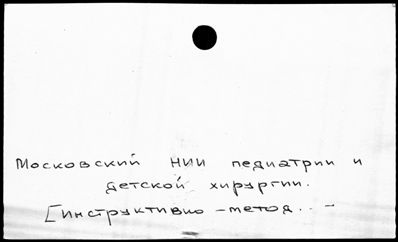 Московский НИИ педиатрии и
детской хирургии.
[Инструктивно-метод. . -